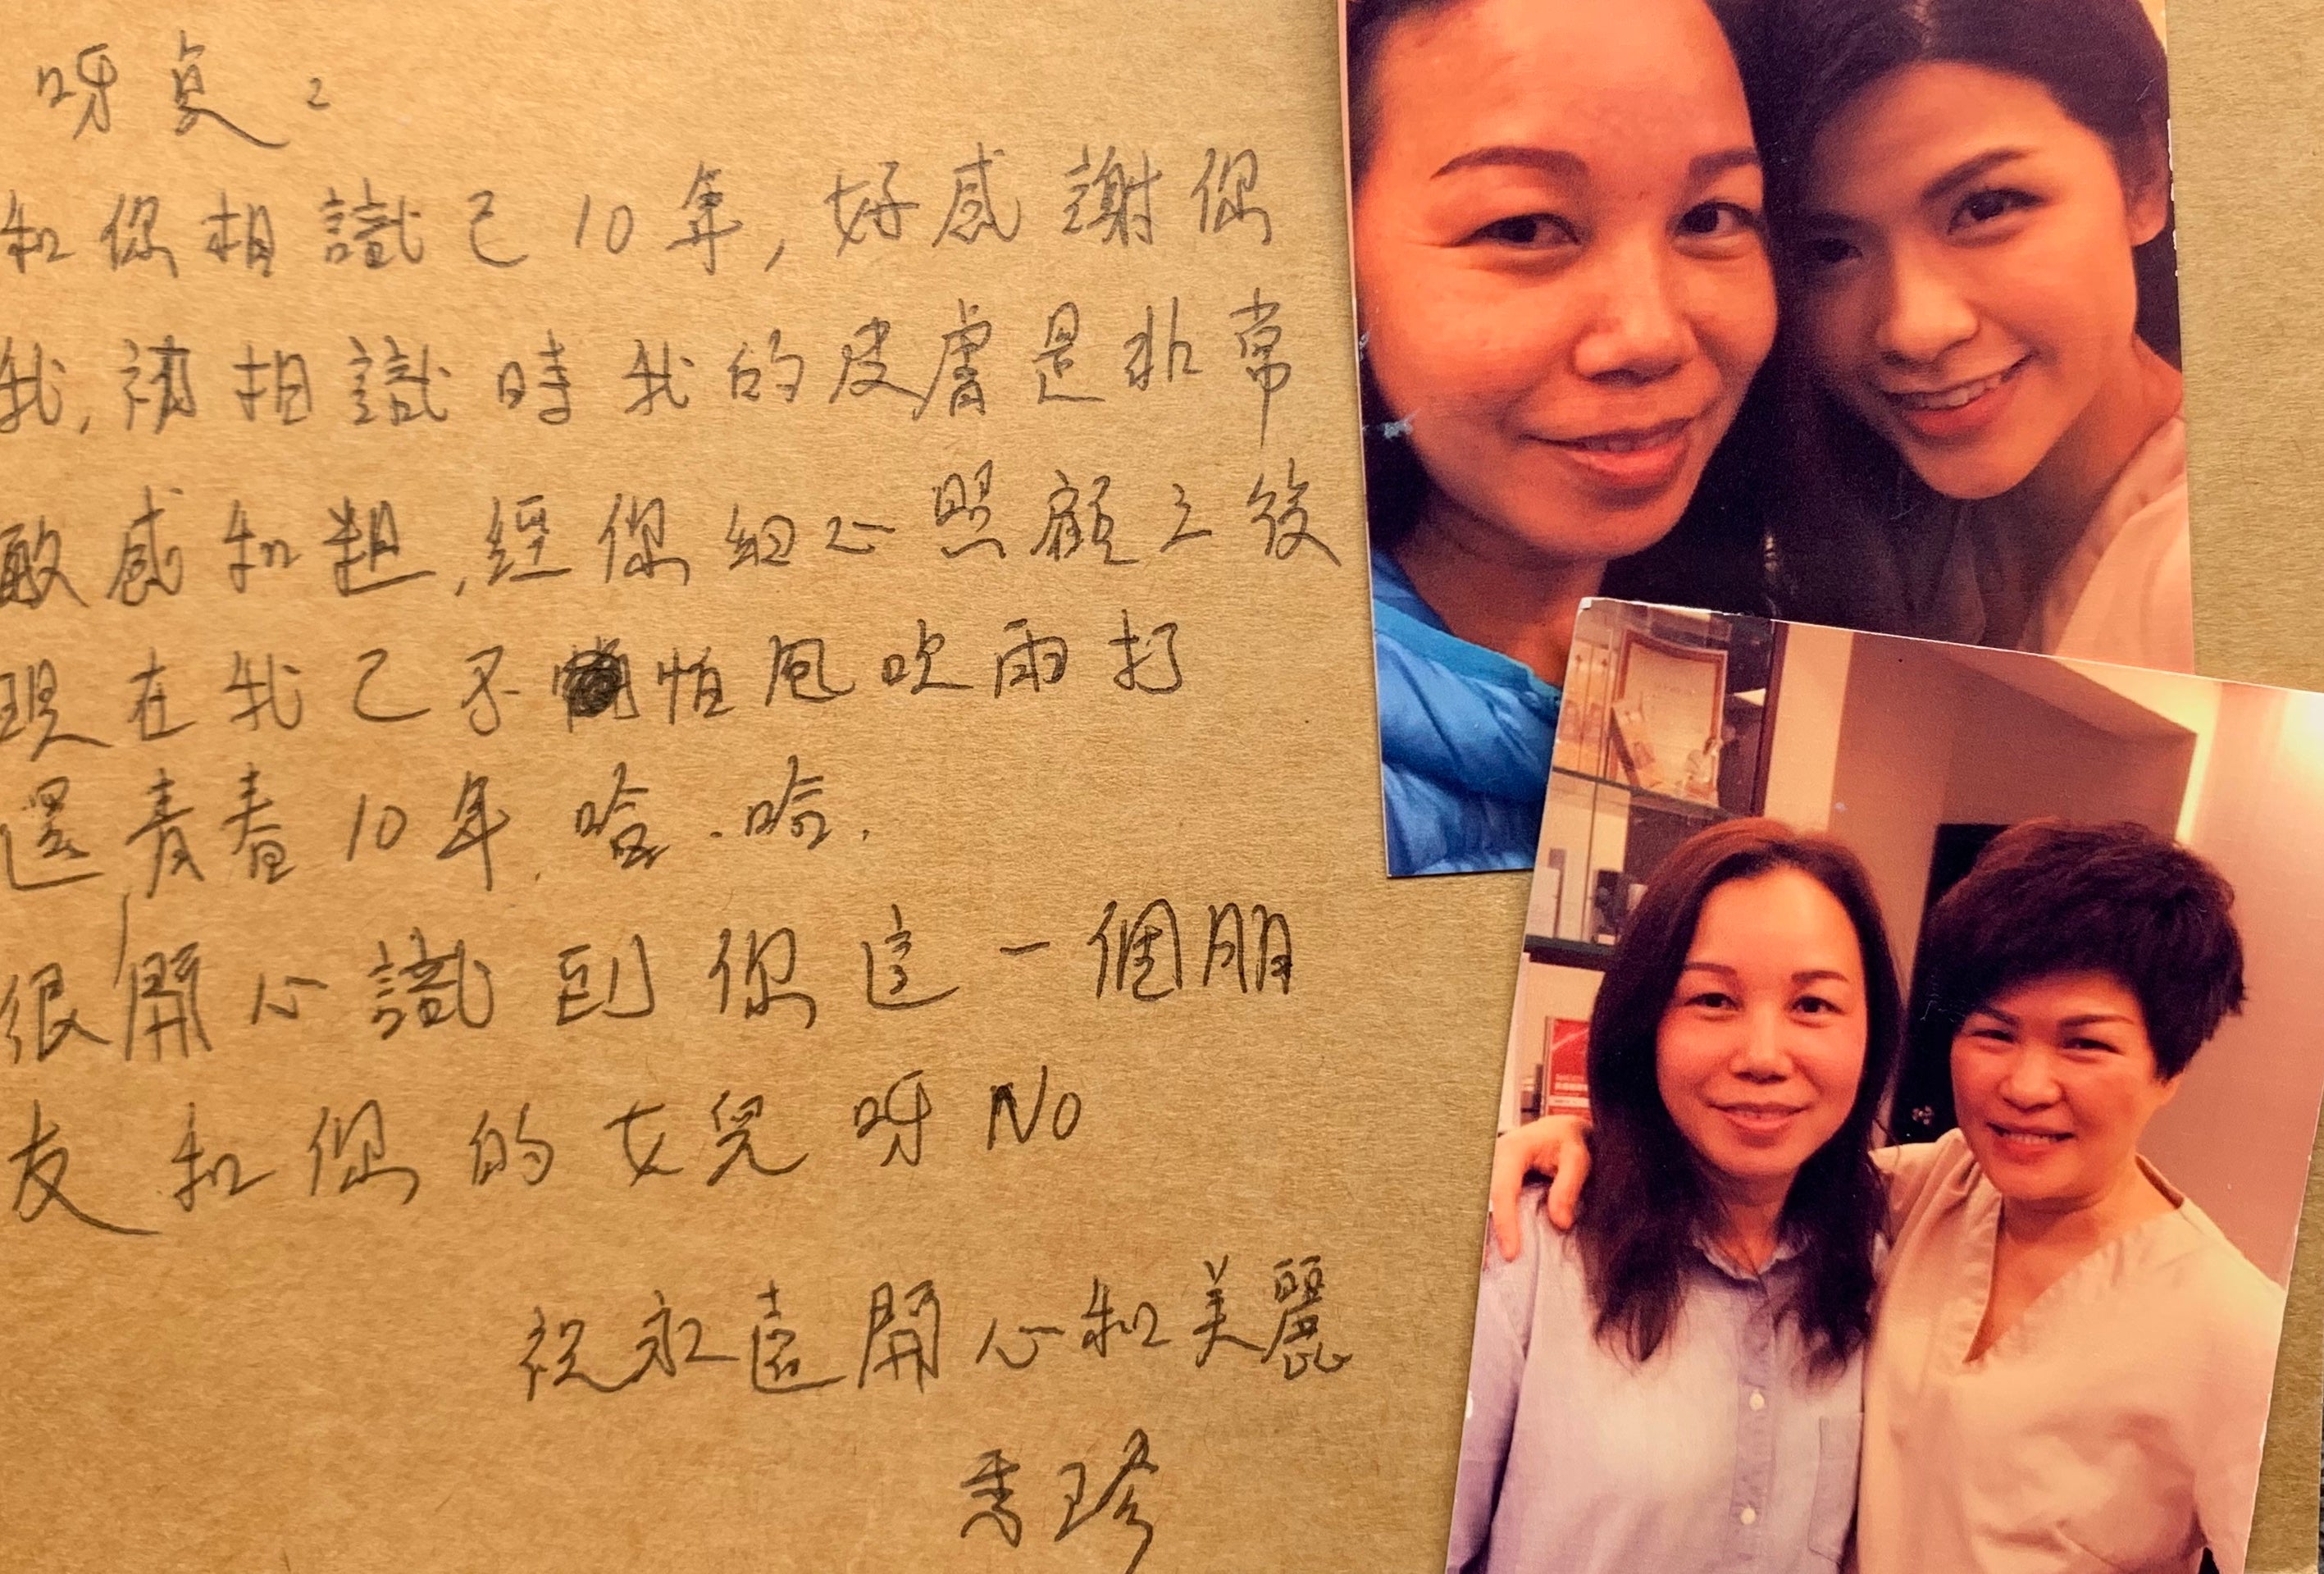 呀貞：
和您相識已10年，好感謝您
我，初相識時我的皮膚是非常
敏感和粗，經您細心照顧之後
現在我已不怕風吹雨打
還青春10年．哈．哈．
很開心識到您這一個朋
友和您的女兒呀No
祝永遠開心和美麗
秀珍